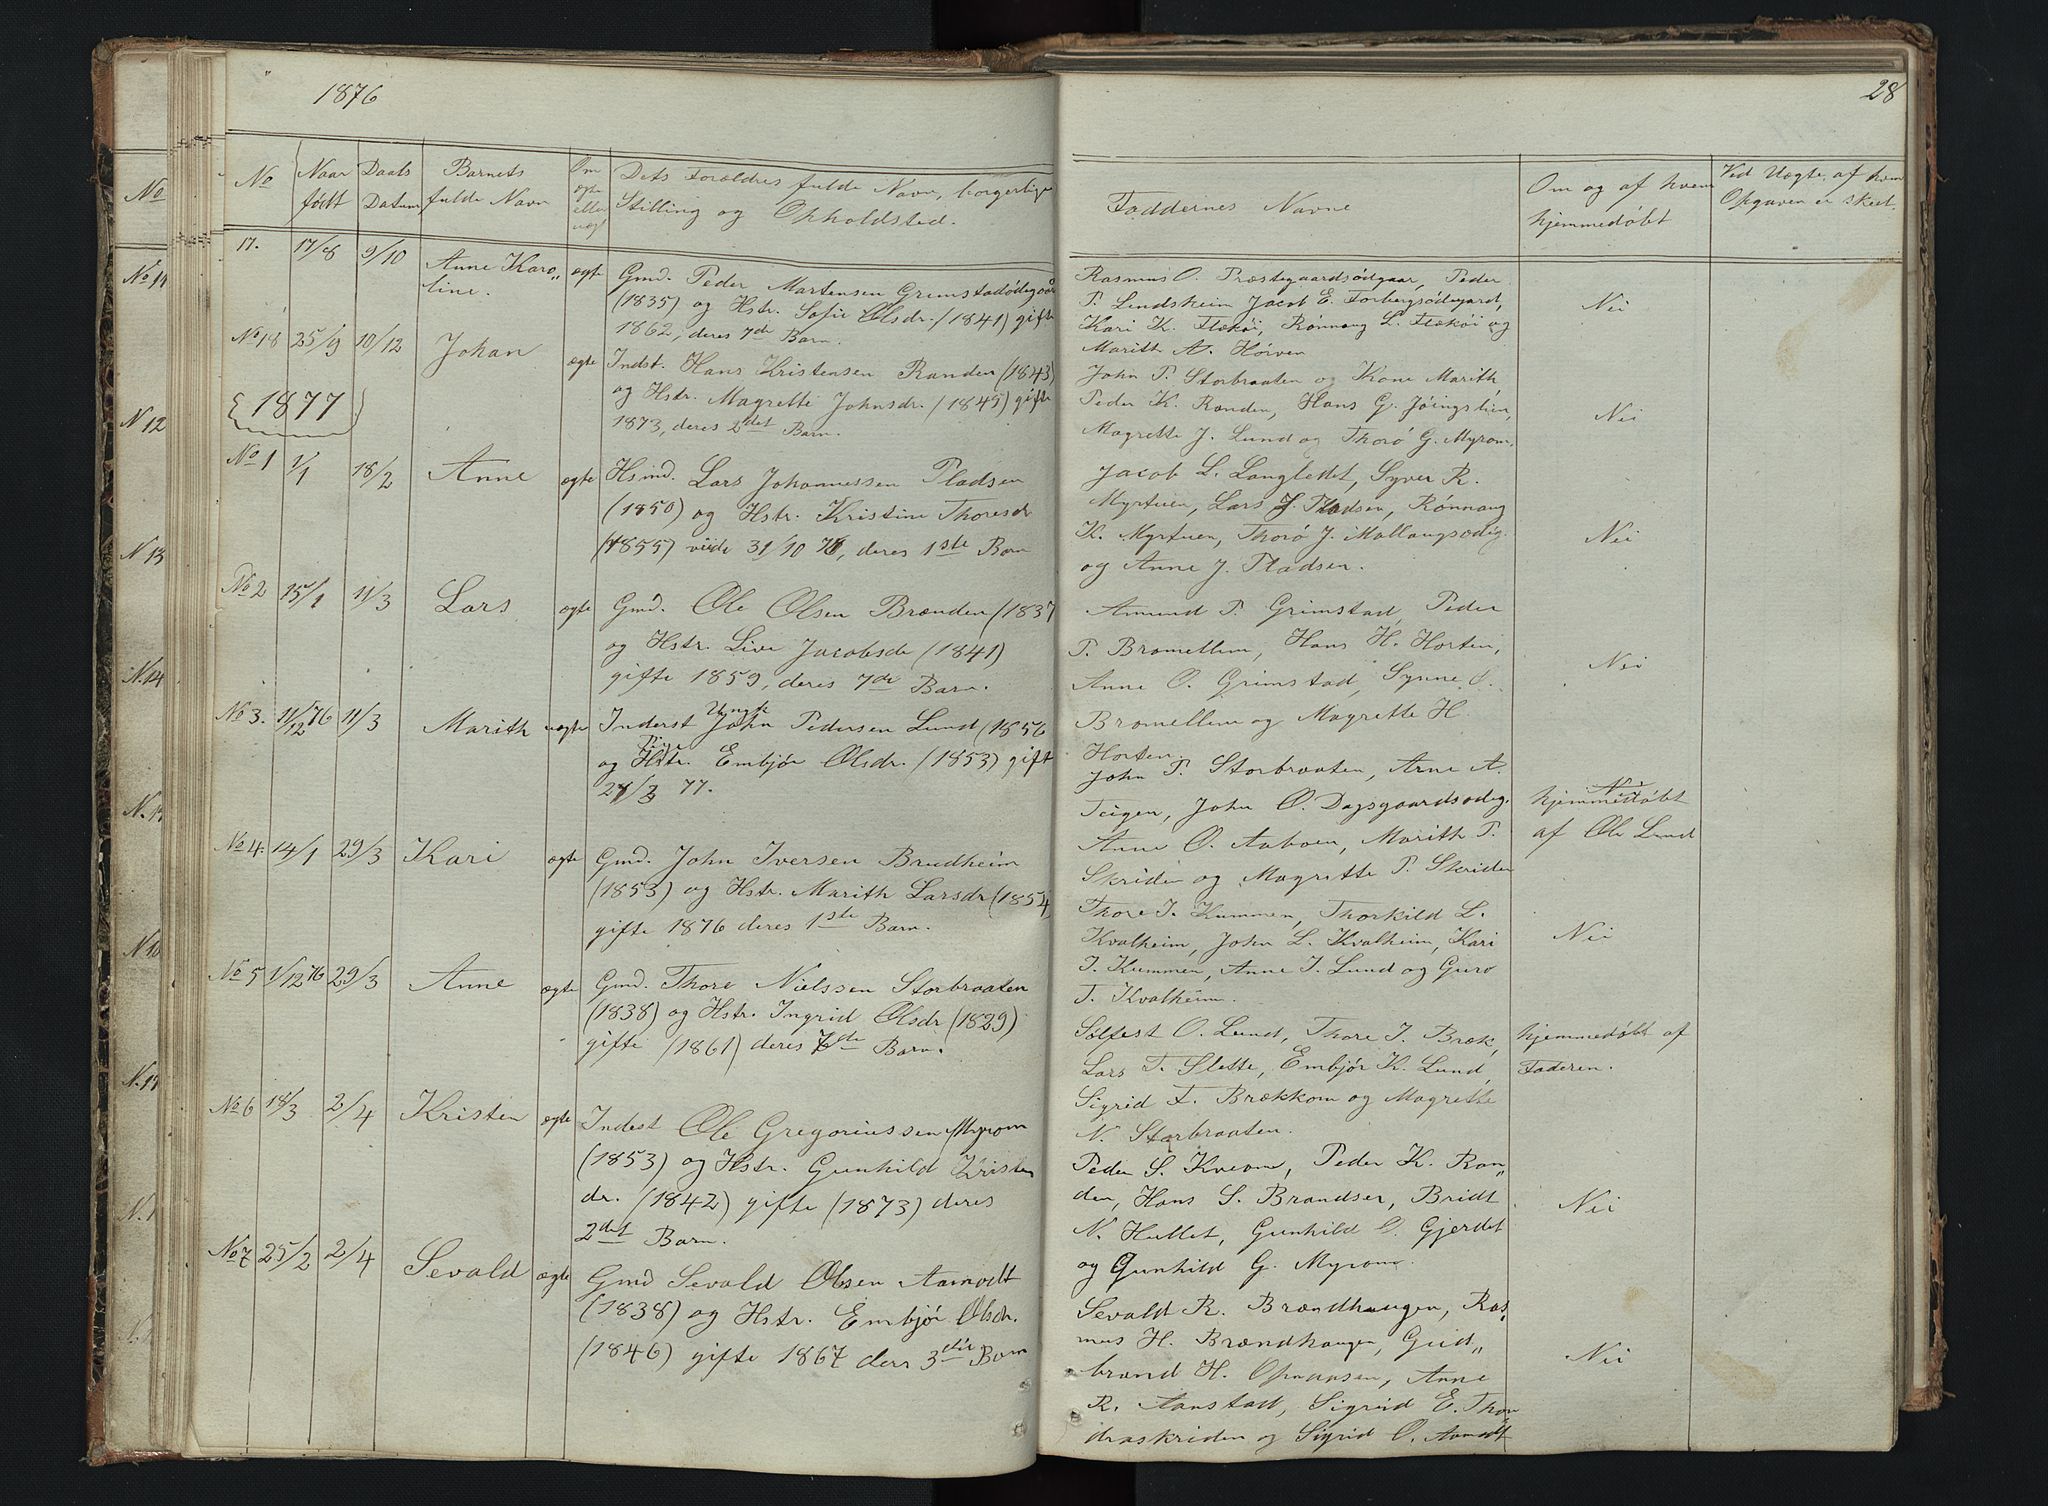 1876
No
Naar
født
Daabs
Datum
Barnets
fulde Navn
Om
ægte
eller
uægt
Dets Forældres fulde Navn, borgerlige
Stilling og Opholdsted.
17. 17/8 9/10 Anne Karo„
line. ægte
Gmd. Peder Martensen Grimstadødegaar
(1835) og Hstr. Sofie Olsdr. (1841) gifte
1862, deres 7de Barn.
No 18 25/9 10/12 Johan ægte
Indst. Hans Kristensen Randen (1843)
og Hstr. Magrette Johnsdr. (1845) gifte
1873, deres 2det Barn.
{1877}
No 1 1/1 18/2 Anne ægte
Hsmd. Lars Johannessen Pladsen
(1850) og Hstr. Kristine Thoresdr
(1855) viede 31/10 76, deres 1ste Barn
No 2 15/1 11/3 Lars ægte
Gmd. Ole Olsen Brænden (1837
og Hstr. Live Jacobsdr (1841)
gifte 1859, deres 7de Barn.
No 3. 11/12 76 11/3 Marith uægte
Ungk
Inderst John Pedersen Lund (1856
Pige
og Hstr. Embjør Olsdr. (1853) gift
77.
No 4. 14/1 29/3 Kari ægte
Gmd. John Iversen Brudheim
(1853) og Hstr. Marith Larsdr (1854)
gifte 1876 deres 1ste Barn.
No 5 1/12 76 29/3 Anne ægte
Gmd. Thore Nielssen Storbraaten
(1838) og Hstr. Ingrid Olsdr (1829)
gifte (1861) deres Barn.
No 6 18/3 2/4 Kristen ægte
Indest Ole Gregoriussen Myrom
(1853) og Hstr. Gunhild Kristen
dr. (1842) gifte (1873) deres
2det Barn.
No 7 25/2 2/4 Sevald ægte
Gmd Sevald Olsen Aamodt
(1838) og Hstr. Embjør Olsdr.
(1846) gifte 1867 ders 3die Barn
No
No 11
N 12
N 13
N. 14
28
Faddernes Navne
Om og af hvem
hjemmedøbt
Ved Uægte, af hvem
Opgaven er skeet.
Rasmus O. Præstegaardsødgaar, Peder
P. Lindsheim Jacob E. Forbergsødegard,
Kari K. Flekøi, Rønnaug L. Flækøi og
Marith A. Høiven
Nei
John P. Storbraaten og Kone Marith,
Peder K. Randen, Hans G. Jøingslien,
Magrette J. Lund og Thorø G. Myrom.
Nei
Jacob L. Langlettet, Syver R.
Myrtuen, Lars J. Pladsen, Rønnaug
K. Myrtuen, Thorø J. Mallangsødeg.
og Anne J. Pladsen.
Nei
Amund P. Grimstad, Peder
P. Bromellem, Hans H. Horten,
Anne O. Grimstad, Synne O.
Bromellem og Magrette H.
Horten.
Nei
John P. Storbraaten, Arne A.
Teigen, John O. Dagsgaardsødeg.
Anne O. Aaboen, Marith P.
Skriden og Magrette P. Skriden
Nei
hjemmedøbt
af Ole Lund
Thore I. Kummen, Thorkild L.
Kvalheim, John L. Kvalheim, Kari
I. Kummen, Anne I. Lund og Guro
T. Kvalheim.
Nei
Sølfest O. Lund, Thore I. Bræk,
Lars T. Slette, Embjør K. Lund,
Sigrid T. Brækkom og Magrette
N. Storbraaten.
hjemmedøbt af
Faderen.
Peder S. Kveom, Peder K. Ran„
den, Hans S. Brandser, Bridt
N. Hullet, Gunhild O. Gjerdet
og Gunhild G. Myrom.
Nei
Sevald R. Brændhaugen, Ras„
mus H. Brændhaugen, Gud„
brand H. Opnaasen, Anne
R. Aanstad, Sigrid E. Thon
draskriden og Sigrid O. Aamodt
Nei